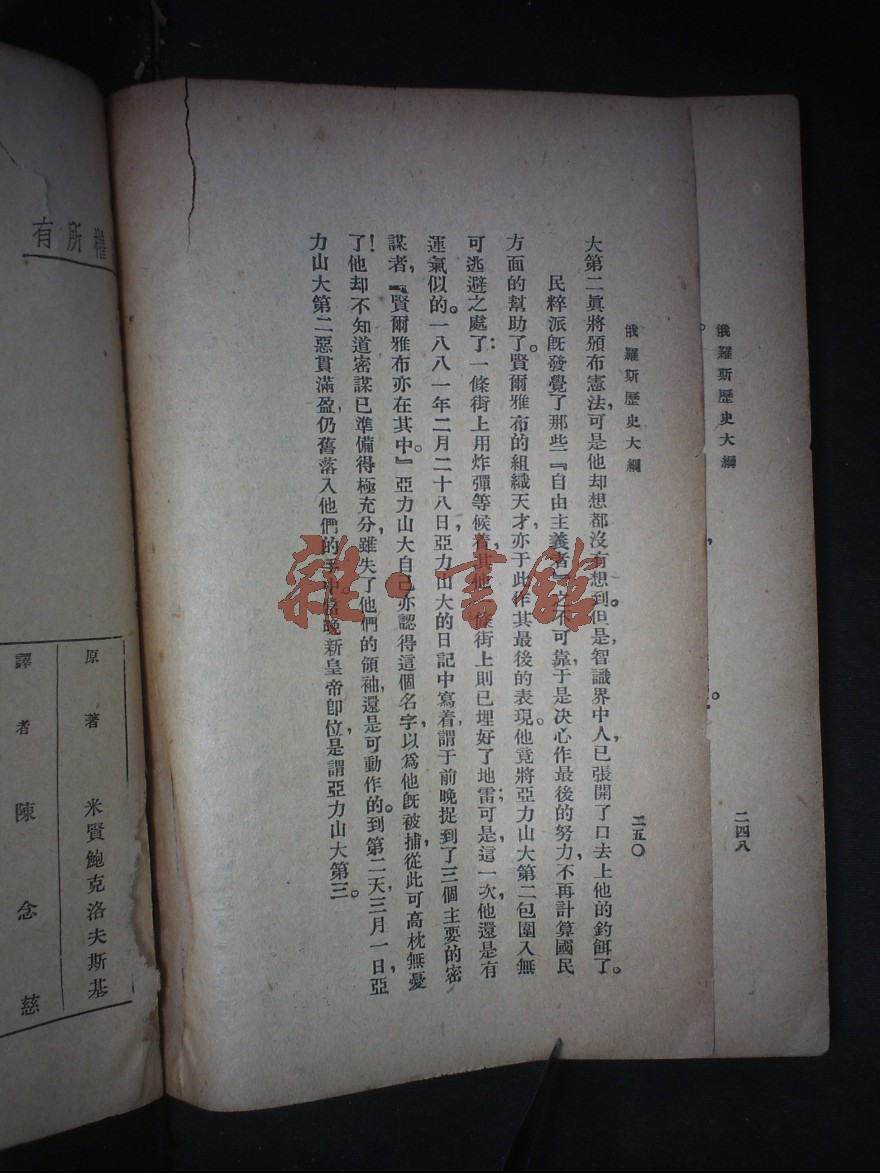 俄羅斯歷史大綱
二四八
俄羅斯歷史大綱
二五〇
大第二眞將頒布憲法，可是他却想都沒有想到。但是智識界中人，已張開了口去上他的釣餌了。
民粹派旣發覺了那些『自由主義者』之不可靠，于是決心作最後的努力，不再計算國民
方面的幫助了。賢爾雅布的組織天才，亦于此作其最後的表現。他竟將亞力山大第二包圍入無
可逃避之處了：一條街上用炸彈等候着，其他一條街上則已埋好了地雷；可是，這一次他還是有
運氣似的。一八八一年二月二十八日，亞力山大的日記中寫着，謂于前晚捉到了三個主要的密
謀者，『賢爾雅布亦在其中。』亞力山大自己亦認得這個名字，以爲他旣被捕，從此可高枕無憂
了！他却不知道密謀已準備得極充分，雖失了他們的領袖，還是可動作的。到第二天三月一日，亞
力山大第二惡貫滿盈，仍舊落入他們的手中。當晚新皇帝卽位，是謂亞力山大第三。
權所有
原著 米賢鮑克洛夫斯基
譯者 陳念慈
雜·書館